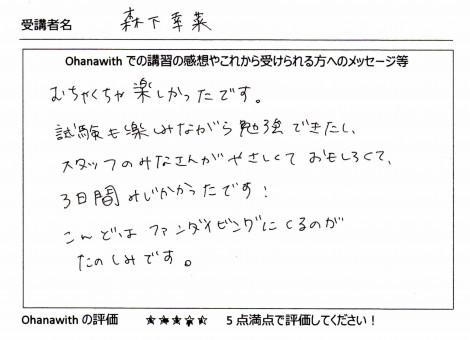 受講者名 森下幸菜
Ohanawith での講習の感想やこれから受けられる方へのメッセージ等
むちゃくちゃ楽しかったです。
試験も楽しみながら勉強できたし、
スタッフのみなさんがやさしくておもしろくて、
3日間みじかかったです！
こんどはファンダイビングにくるのが
たのしみです。
Ohanawith の評価 ★★★★★ 5点満点で評価してください！